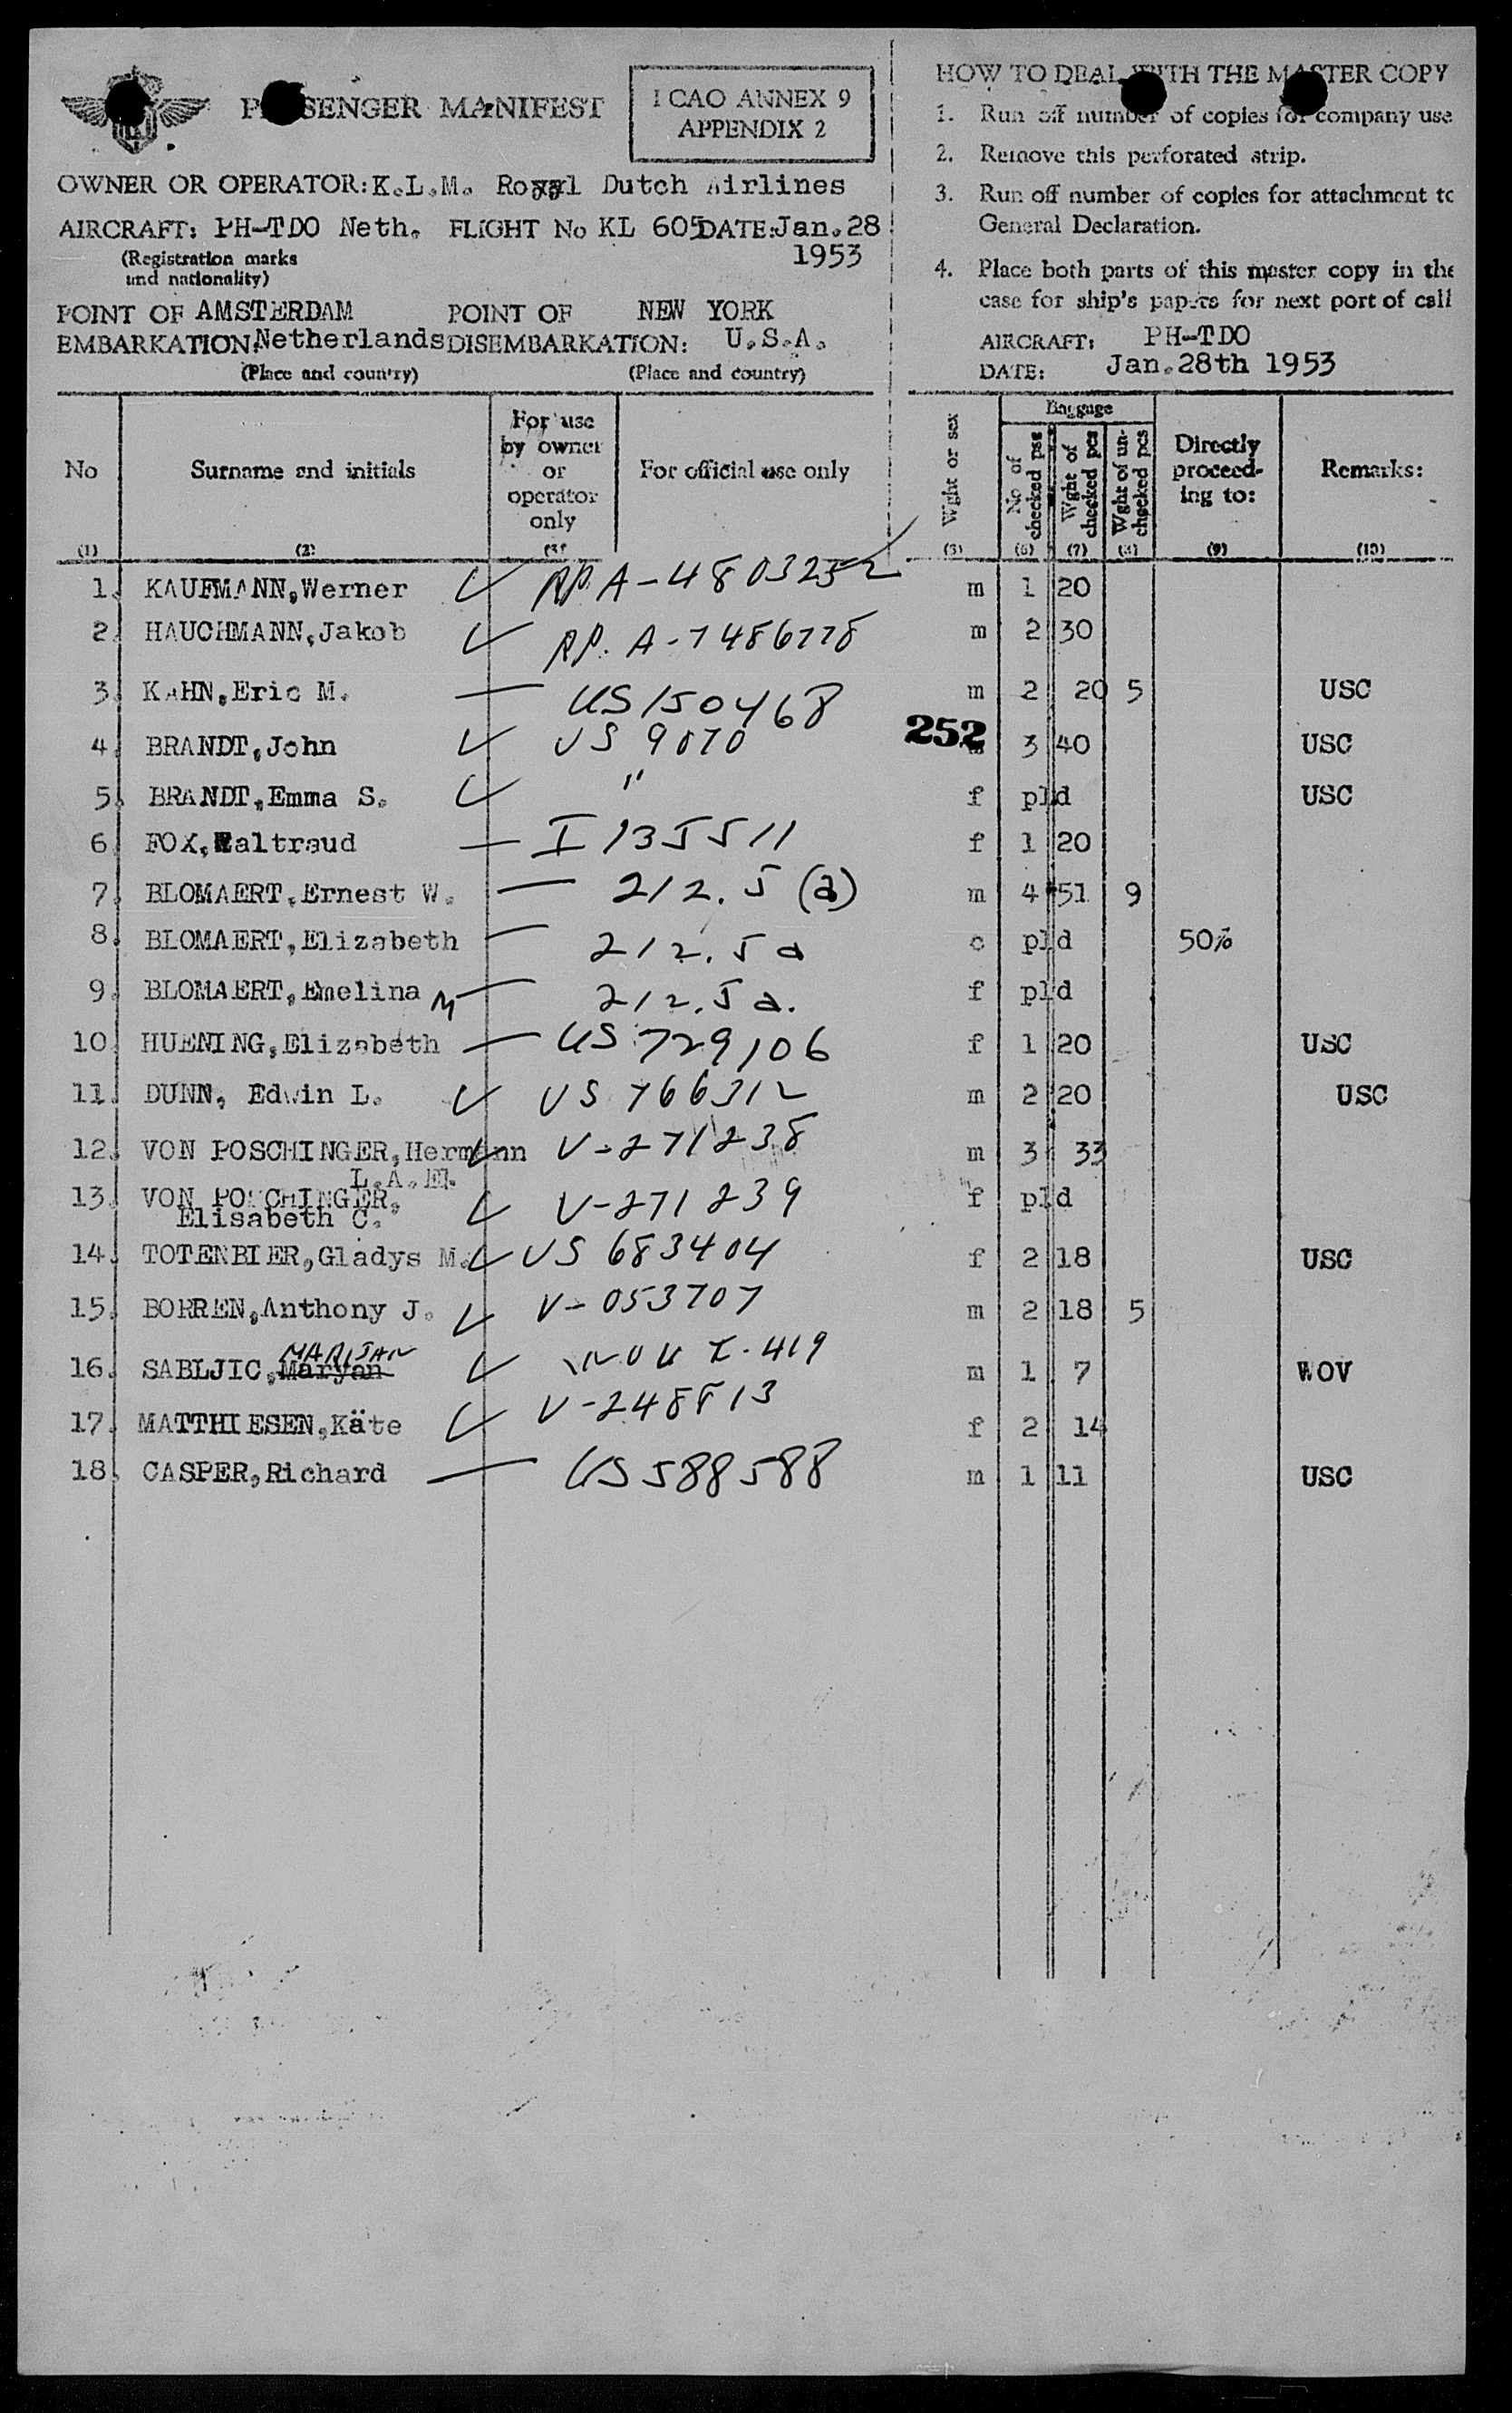 PASSENGER MANIFEST
I CAO ANNEX 9
APPENDIX 2
OWNER OR OPERATOR: K.L.M. Royal Dutch Airlines
AIRCRAFT: PH-TDO Neth. FLIGHT No KL 605 DATE: Jan. 28
(Registration marks
and nationality)
1953
POINT OF AMSTERDAM POINT OF NEW YORK
EMBARKATION: Netherlands DISEMBARKATION: U.S.A.
(Place and country) (Place and country)
HOW TO DEAL WITH THE MASTER COPY
1. Run off number of copies for company use
2. Remove this perforated strip.
3. Run off number of copies for attachment to
General Declaration.
4. Place both parts of this master copy in the
case for ship's papers for next port of call
AIRCRAFT: PH-TDO
DATE: Jan. 28th 1953
No
(1)
Surname and initials
(2)
For use
by owner
or
operator
only
(3)
For official use only
Wght or sex
(5)
Baggage
No of
checked pcs
(6)
Wght of
checked pcs
(7)
Wght of un-
checked pcs
(8)
Directly
proceed-
ing to:
(9)
Remarks:
(10)
1. KAUFMANN, Werner RP. A-4803252 m 1 20
2. HAUCHMANN, Jakob RP. A-7486778 m 2 30
3. KAHN, Eric M. US 150468 m 2 20 5 USC
4. BRANDT, John US 9070 252 3 40 USC
5. BRANDT, Emma S. " f pld USC
6. FOX, Waltraud I 135511 f 1 20
7. BLOMAERT, Ernest W. 212.5 (a) m 4 51 9
8. BLOMAERT, Elizabeth 212.5 a c pld 50%
9. BLOMAERT, Emelina M 212.5 a. f pld
10. HUENING, Elizabeth US 729106 f 1 20 USC
11. DUNN, Edwin L. US 766312 m 2 20 USC
12. VON POSCHINGER, Hermann V-271238 m 3 33
L.A.E.
13. VON POSCHINGER, V-271239 f pld
Elisabeth C.
14. TOTENBIER, Gladys M. US 683404 f 2 18 USC
15. BOHREN, Anthony J. V-053707 m 2 18 5
MARIJAN
16. SABLJIC, Maryan I-419 m 1 7 WOV
17. MATTHIESEN, Käte V-248813 f 2 14
18. CASPER, Richard US 588588 m 1 11 USC